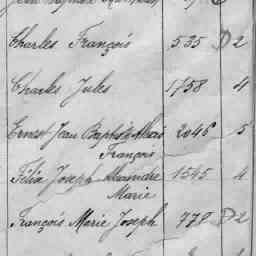 Charles François 535 D 2
Charles Jules 1758 4
Ernest Jean Baptiste 2046 5
François
Félix Joseph Alexandre 1545 4
Marie
François Marie Joseph 778 D 2